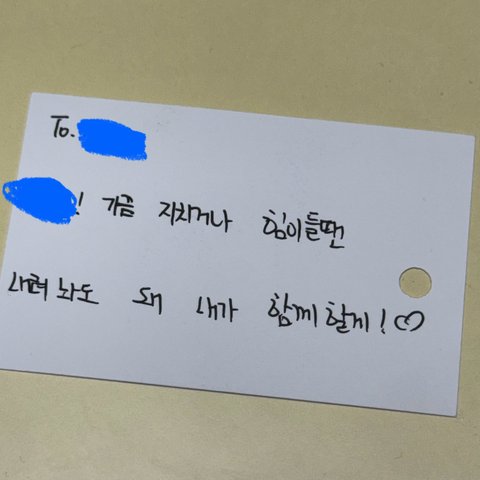 To.
! 가끔 지치거나 힘이들땐
내려 놔도 돼 내가 함께 할게! ♡